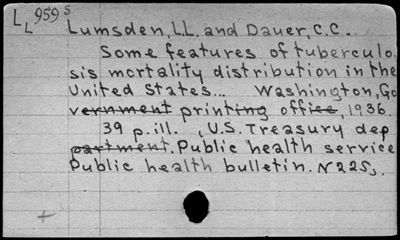 LL 959 s
Lumsden, L.L. and Dauer, C.C.
Some features of tuberculo
sis mortality distribution in the
United States... Washington, Go
vernment printing office, 1936.
39 p. ill. (U.S. Treasury dep
partment. Public health service
Public health bulletin. N225).